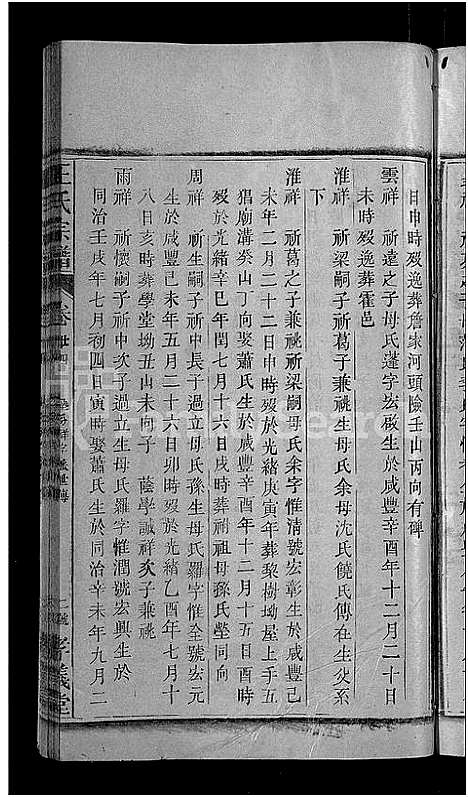 日申時歿逸葬詹家河頭險壬山丙向有碑
雲祥 祈遠之子母氏蓬字宏啟生於咸豐辛酉年十二月二十日
未時歿逸葬霍邑
淮祥 祈梁嗣子祈葛子兼祧生母氏余母沈氏饒氏傳在生父系
下
淮祥 祈葛之子兼祧祈梁嗣母氏余字惟清號宏彰生於咸豐己
未年二月二十二日申時歿於光緒庚寅年葬黎樹坳屋上手五
猖廟溝癸山丁向娶蕭氏生於咸豐辛酉年十二月十五日酉時
歿於光緒辛巳年閏七月十六日戌時葬祖母孫氏塋同向
周祥 祈生嗣子祈中長子過立母氏孫生母氏羅字惟全號宏元
生於咸豐己未年五月二十六日卯時歿於光緒乙酉年七月十
八日亥時葬學堂坳丑山未向子 蔭學誠祥次子兼祧
雨祥 祈懷嗣子祈中次子過立生母氏羅字惟潤號宏興生於
同治壬戌年七月初四日寅時娶蕭氏生於同治辛未年九月二
王氏宗譜 卷廿四 孝義堂